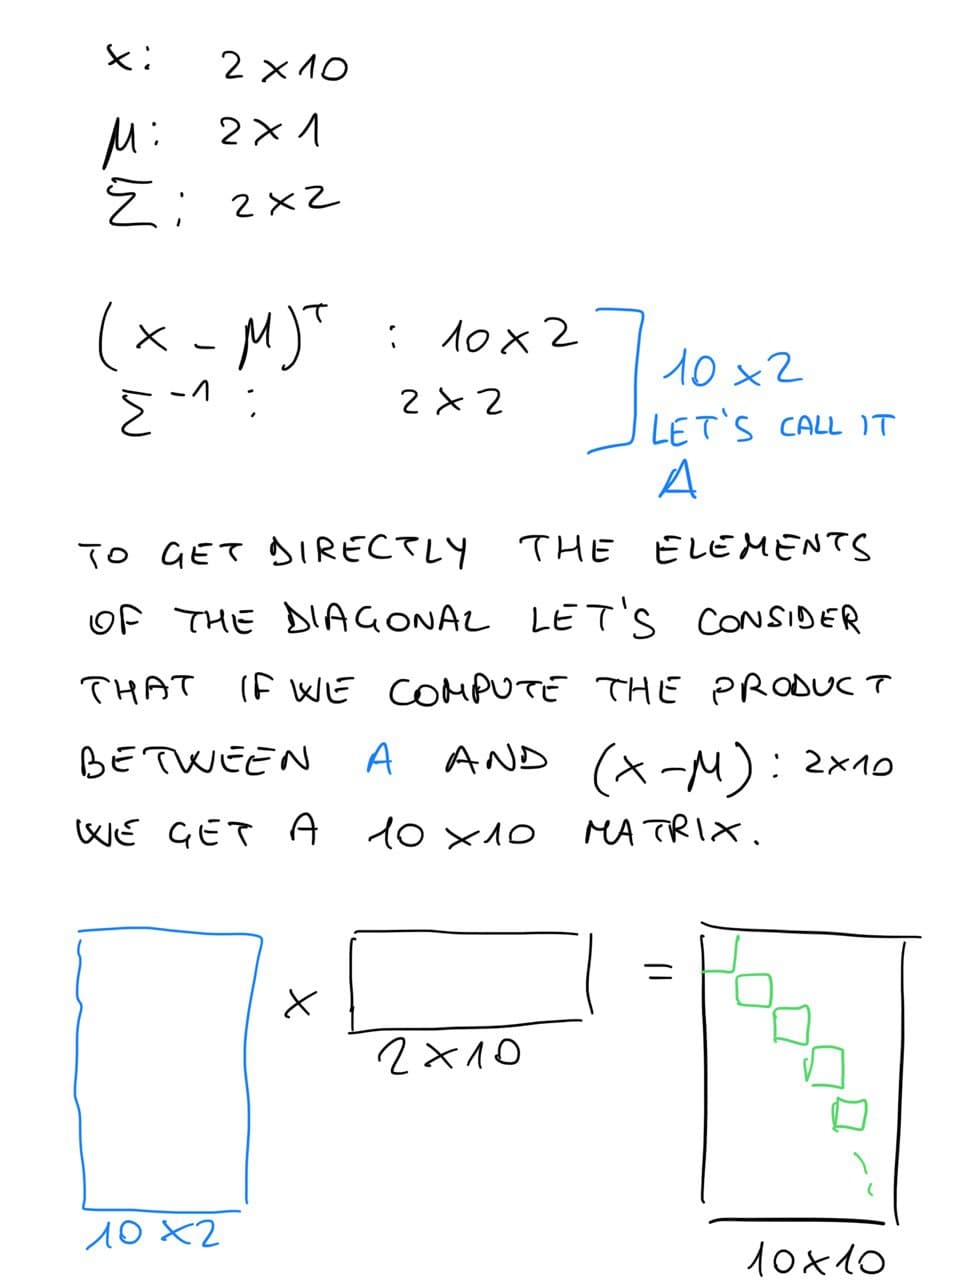 x: 2 x 10
μ: 2 x 1
Σ; 2 x 2
(x - μ)ᵀ : 10 x 2
Σ⁻¹ : 2 x 2
10 x 2
LET'S CALL IT
A
TO GET DIRECTLY THE ELEMENTS
OF THE DIAGONAL LET'S CONSIDER
THAT IF WE COMPUTE THE PRODUCT
BETWEEN A AND (x - μ) : 2x10
WE GET A 10 x 10 MATRIX.
x =
2 x 10
10 x 2
10x10